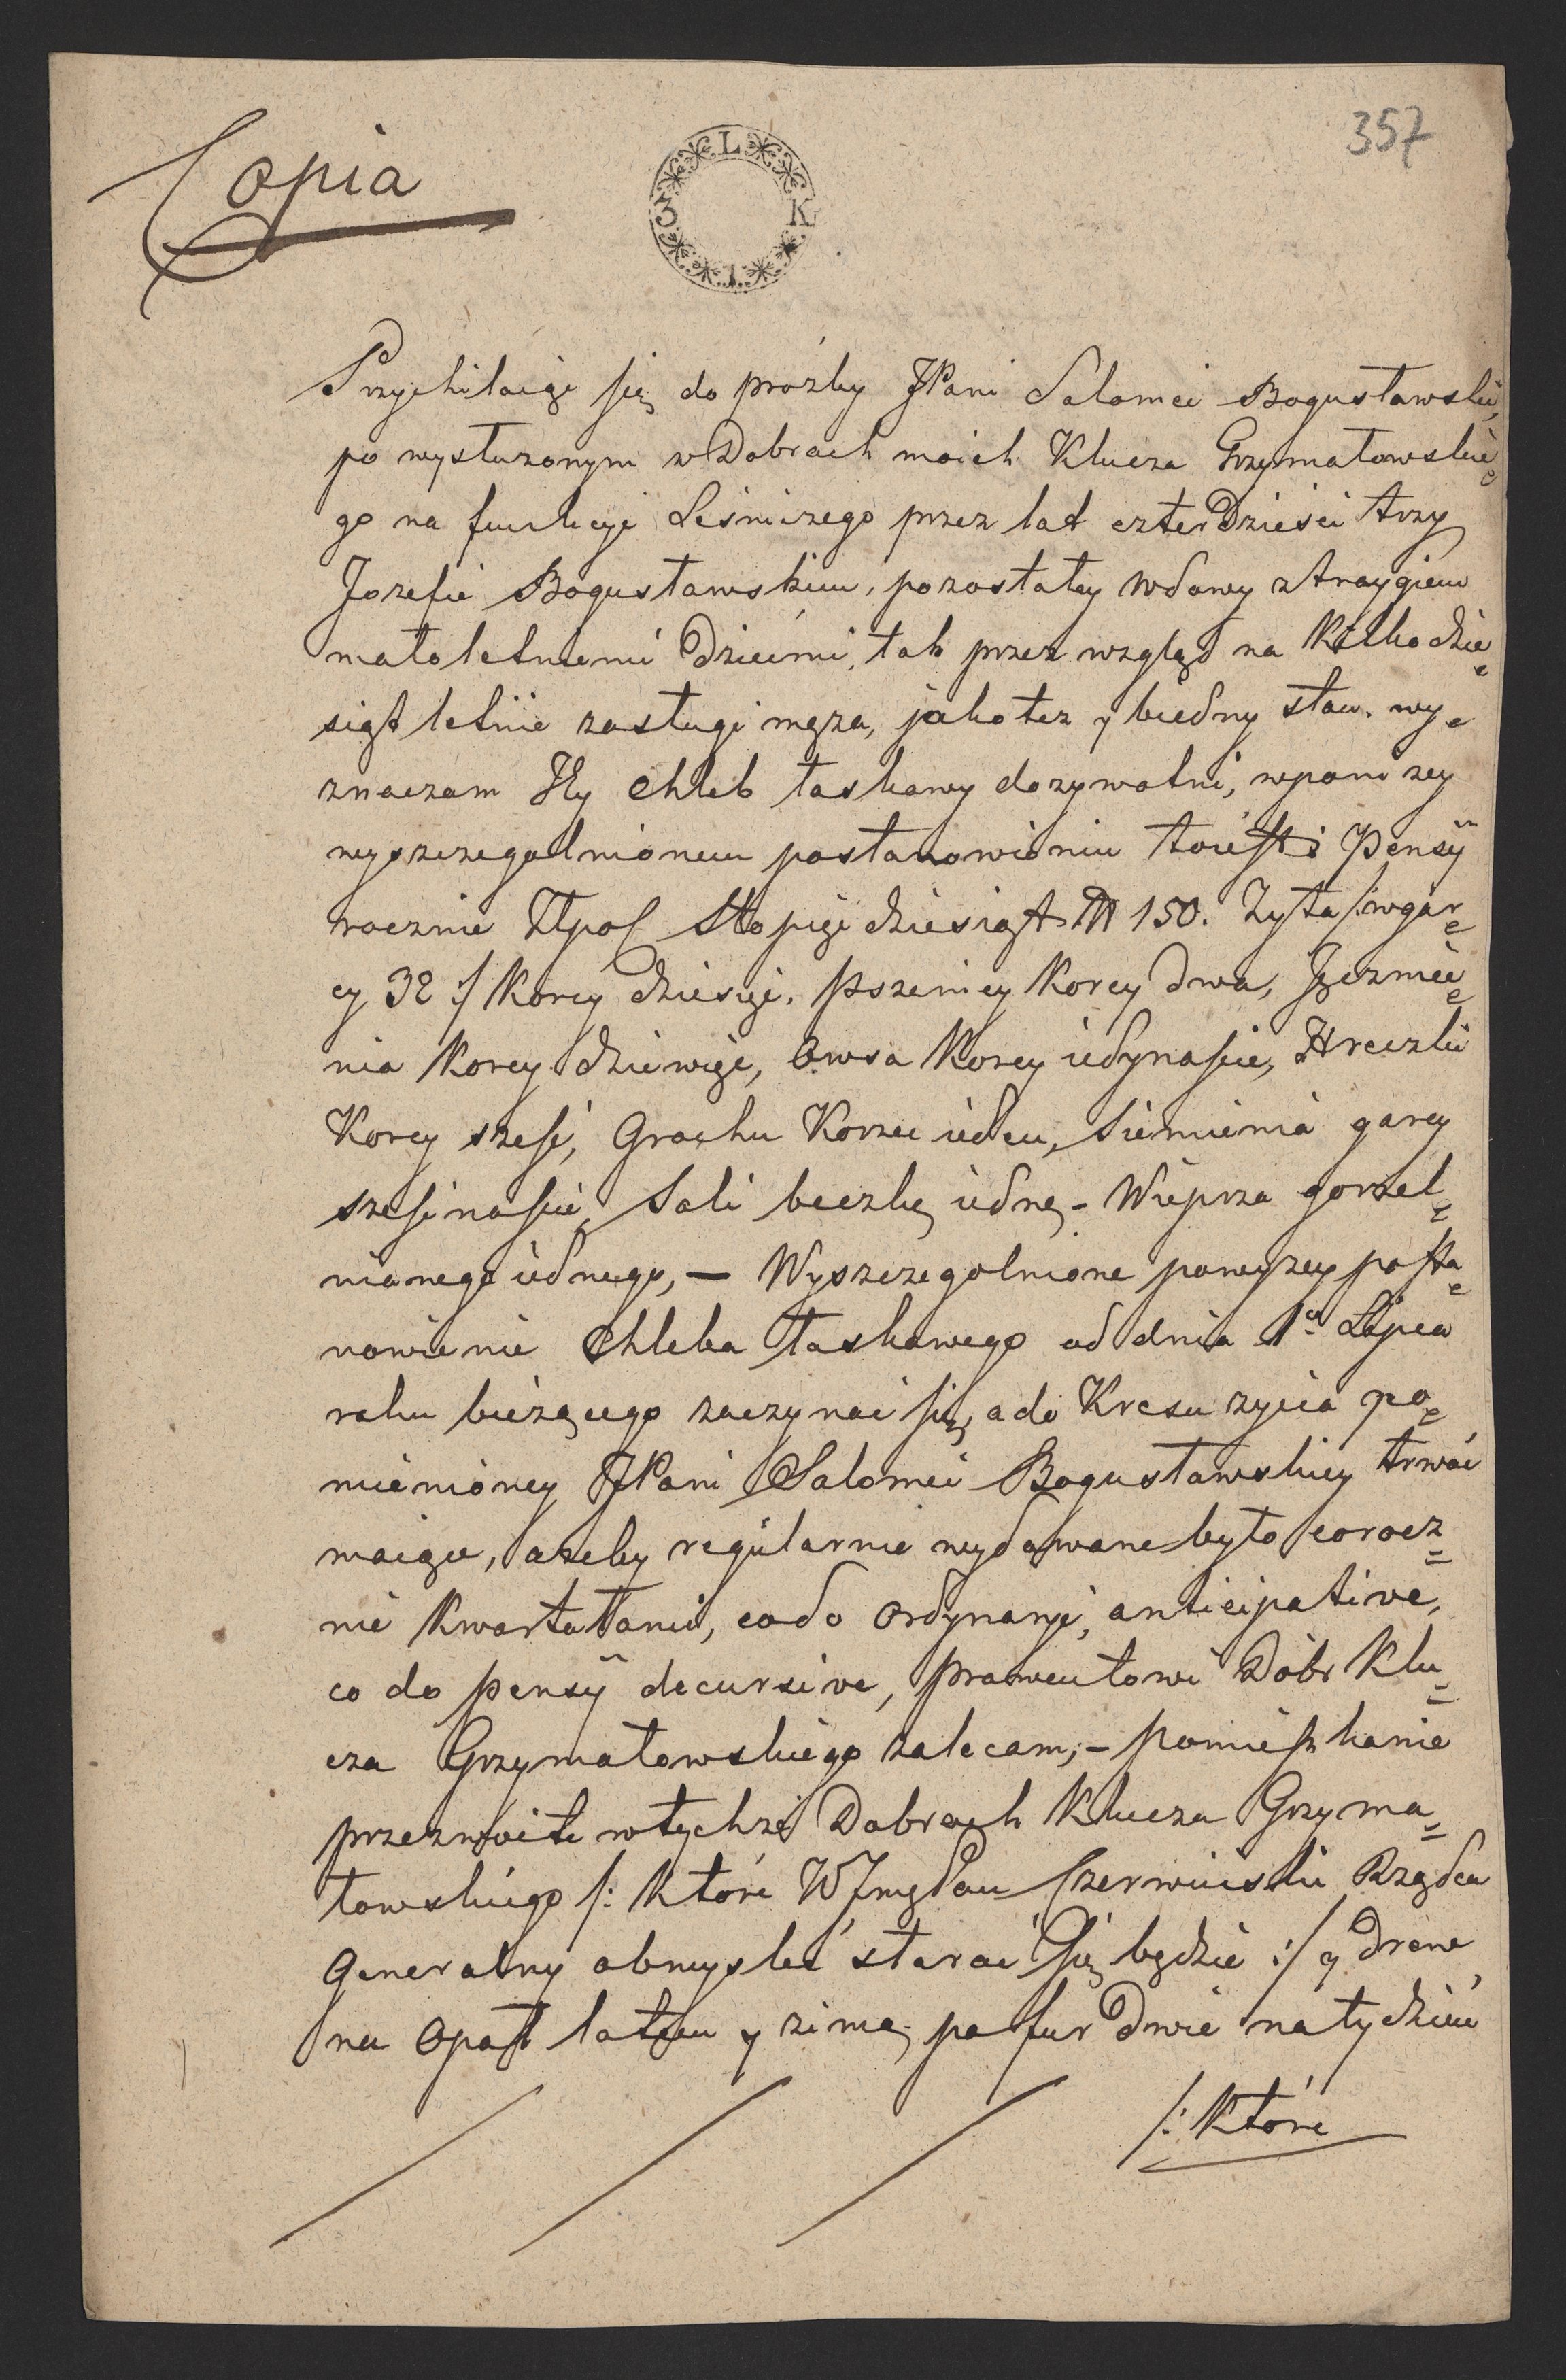 357
Copia
L K I 3
Przychilaiąc się do prozby JPani Salomei Bogusławski,
po wysłuzonym w Dobrach moich Klucza Grzymałowskie
go na funkcyi Leśniczego przez lat czterdzieści trzy
Jozefie Bogusławskim, pozostałey wdowy z troygiem
małoletniemi dziećmi, tak przez wzgląd na Kilkadzie
siąt letnie zasługi męza, jako tez y biedny stan, wy
znaczam Jey Chleb łaskawy dozywotni, w poniżey
wyszczegulnionem postanowieniu toiest: Pensÿ
rocznie Złpol Sto pięćdziesiąt 150. Zyta /: w gar
cy 32 :/ Korcy dziesięć, Pszenicy Korcy dwa, Jęczmie
nia Korcy dziewięć, Owsa Korcy iedynaście, Hreczki
Korcy sześć, Grochu Korzec ieden, Siemienia garcy
szesnaście, Soli beczkę iedne, - Wieprza gorzel
nianego iednego, — Wyszczegolnione powyzey posta
nowienie Chleba łaskawego od dnia 1o Lipca
roku bieżącego zaczynać się, a do Kresu zycia po
mienioney JPani Salomei Bogusławskiey trwać
maiące, azeby regularnie wydawane było corocz
nie Kwartałami, co do Ordynaryi, anticipative,
co do pensÿ decursive, prowentowi Dóbr Klu
cza Grzymałowskiego zalecam; - pomieszkanie
przezwoite w tychże Dobrach Klucza Grzyma
łowskiego /: Które WJmć Pan Czerwiński Rządca
Generalny obmysleć starać się będzie :/ y Drwa
na Opał latem y zimą po fur dwie na tydzień
/: Które